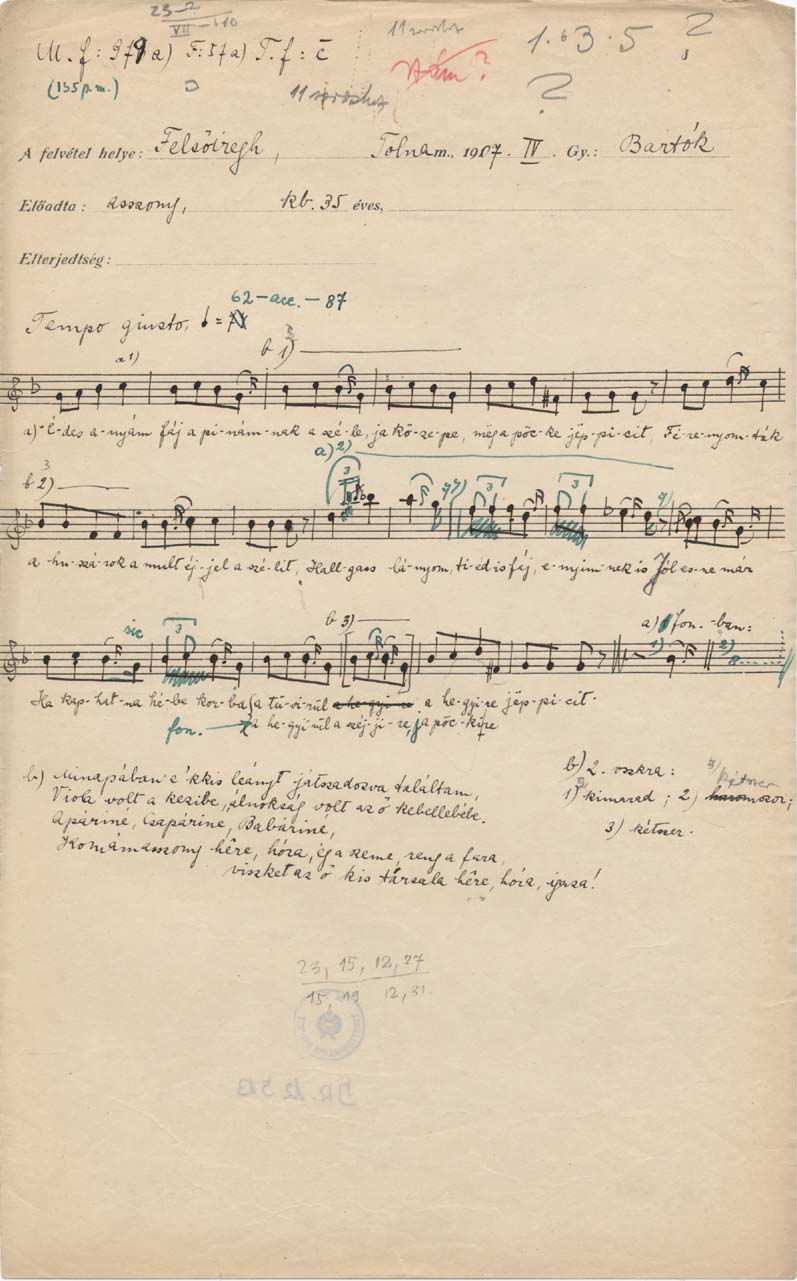 23-2
VII-110
11 soros
M. f: 979a) F: 57a) T. f: c̄
Nám?
1. 6 3. 5 ?
(135 p.m.)
11 soroshoz
?
A felvétel helye: Felsőiregh, Tolna m., 1907. IV. Gy.: Bartók
Előadta: asszony, kb. 35 éves,
Elterjedtség:
62 – acc. – 87
Tempo giusto,
a 1)
b 1)
a) É-des a-nyám fáj a pi-nám-nak a szé-le, ja kö-ze-pe, mëg a pöc-ke jëp-pi-cit, Fé-re-nyom-ták
a) 2)
b 2)
3
3
3
a hu-szá-rok a mult éj-jel a szé-lit, Hall-gass lá-nyom, ti-éd is fáj, e-nyim-nek is Jól es-ne már
sic
3
b 3)
a) fon.-ban:
1)
2)
Ha kap-hat-na hé-be kor-ba a tü-vi-rül a he-gyi-re a he-gyi-re jëp-pi-cit.
fon. a he-gyi-rül a széj-ji-re, ja pöc-ki-re
b) Minapában e'kkis leányt játszadozva találtam,
Viola volt a kezibe, álnokság volt az ő kebellebébe.
Apáriné, Csapáriné, Babáriné,
Komámasszony hêre, hóra, ég a szeme, reng a fara,
viszket az ő kis társala hêre, hóra, igaza!
b) 2. vszkra:
1) kimarad; 2) háromszor; kétszer
3) kétszer.
23, 15, 12, 27
15, 19 12, 31.